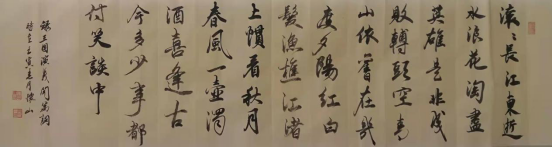 滚々長江東逝
水浪花淘盡
英雄是非成
敗轉頭空青
山依舊在幾
度夕陽紅白
髮漁樵江渚
上慣看秋月
春風一壺濁
酒喜逢古
今多少事都
付笑談中
錄三國演義開篇詞
壬寅夏月